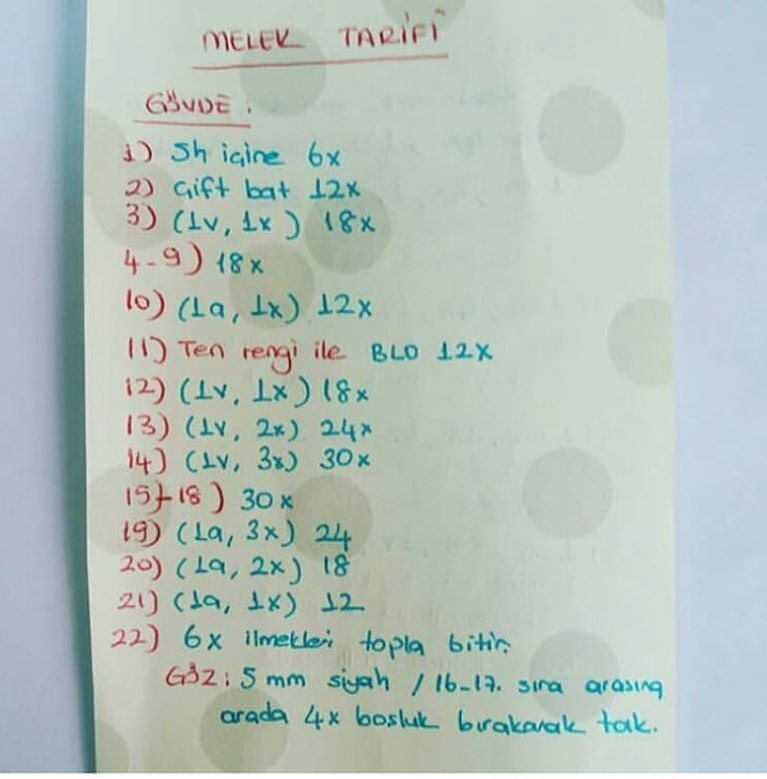 MELEK TARİFİ
GÖVDE :
1) Sh içine 6x
2) Çift bat 12x
3) (1v, 1x) 18x
4-9) 18x
10) (1a, 1x) 12x
11) Ten rengi ile BLO 12x
12) (1v, 1x) 18x
13) (1v, 2x) 24x
14) (1v, 3x) 30x
15-18) 30x
19) (1a, 3x) 24
20) (1a, 2x) 18
21) (1a, 1x) 12
22) 6x ilmekleri topla bitir.
GÖZ: 5 mm siyah / 16-17. sıra arasına
arada 4x boşluk bırakarak tak.